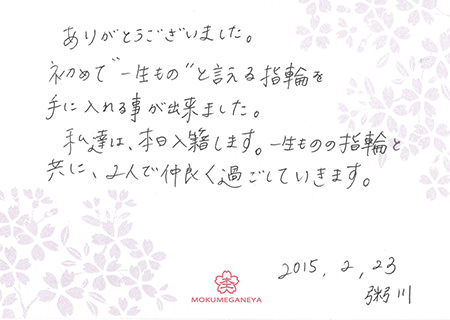 ありがとうございました。
初めて"一生もの"と言える指輪を
手に入れる事が出来ました。
私達は、本日入籍します。一生ものの指輪と
共に、2人で仲良く過ごしていきます。
2015, 2, 23
粥川
MOKUMEGANEYA